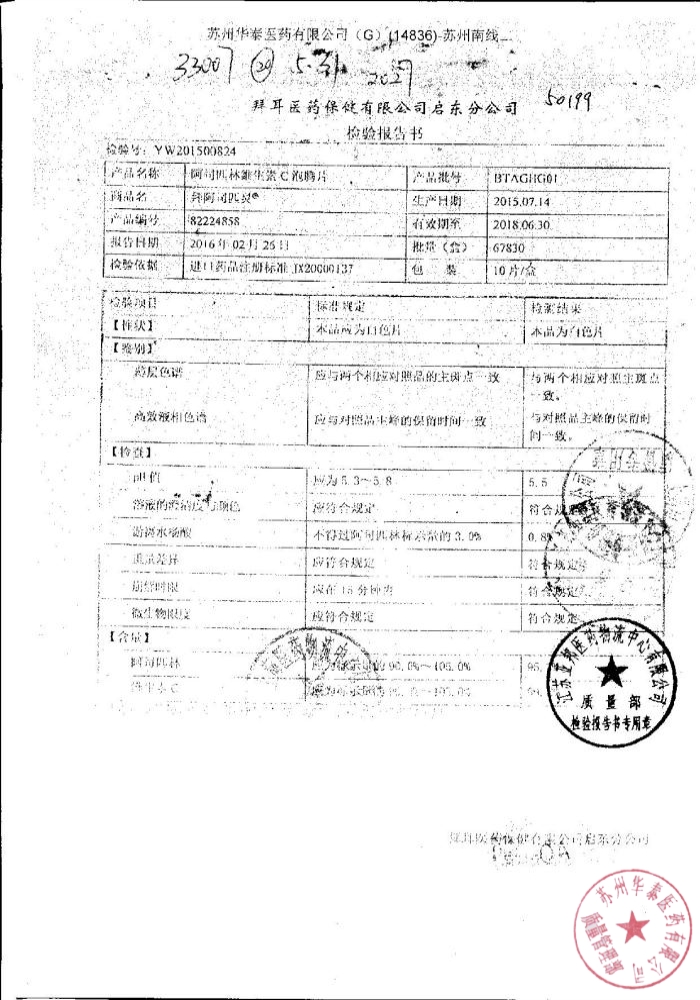 苏州华泰医药有限公司 (G) (14836)-苏州南线
33007 20 5.31 2027
50199
拜耳医药保健有限公司启东分公司
检验报告书
检验号: YW201500824
产品名称 阿司匹林维生素C泡腾片 产品批号 BTAGHG01
商品名 拜阿司匹灵® 生产日期 2015.07.14
产品编号 82224858 有效期至 2018.06.30
报告日期 2016年02月26日 批量(盒) 67830
检验依据 进口药品注册标准 JX20000137 包 装 10片/盒
检验项目 标准规定 检测结果
【性状】 本品应为白色片 本品为白色片
【鉴别】
薄层色谱 应与两个相应对照品的主斑点一致 与两个相应对照主斑点
一致。
高效液相色谱 应与对照品主峰的保留时间一致 与对照品主峰的保留时
间一致。
【检查】
pH值 应为5.3~5.8 5.5
溶液的澄清度与颜色 应符合规定 符合规定
游离水杨酸 不得过阿司匹林标示量的3.0% 0.8%
重量差异 应符合规定 符合规定
崩解时限 应在15分钟内 符合规定
微生物限度 应符合规定 符合规定
【含量】
阿司匹林 应为标示量的90.0%~105.0% 95.
维生素C
医药物流中心
江苏亚邦医药物流中心有限公司
质量部
检验报告书专用章
拜耳医药保健有限公司启东分公司
苏州华泰医药有限公司
质量管理部